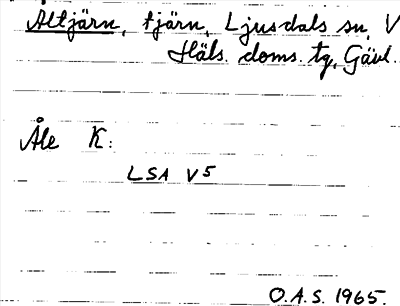 Altjärn, tjärn, Ljusdals sn, V
Häls. doms. tg, Gävl.
Åle K:
LSA V5
O.A.S. 1965.